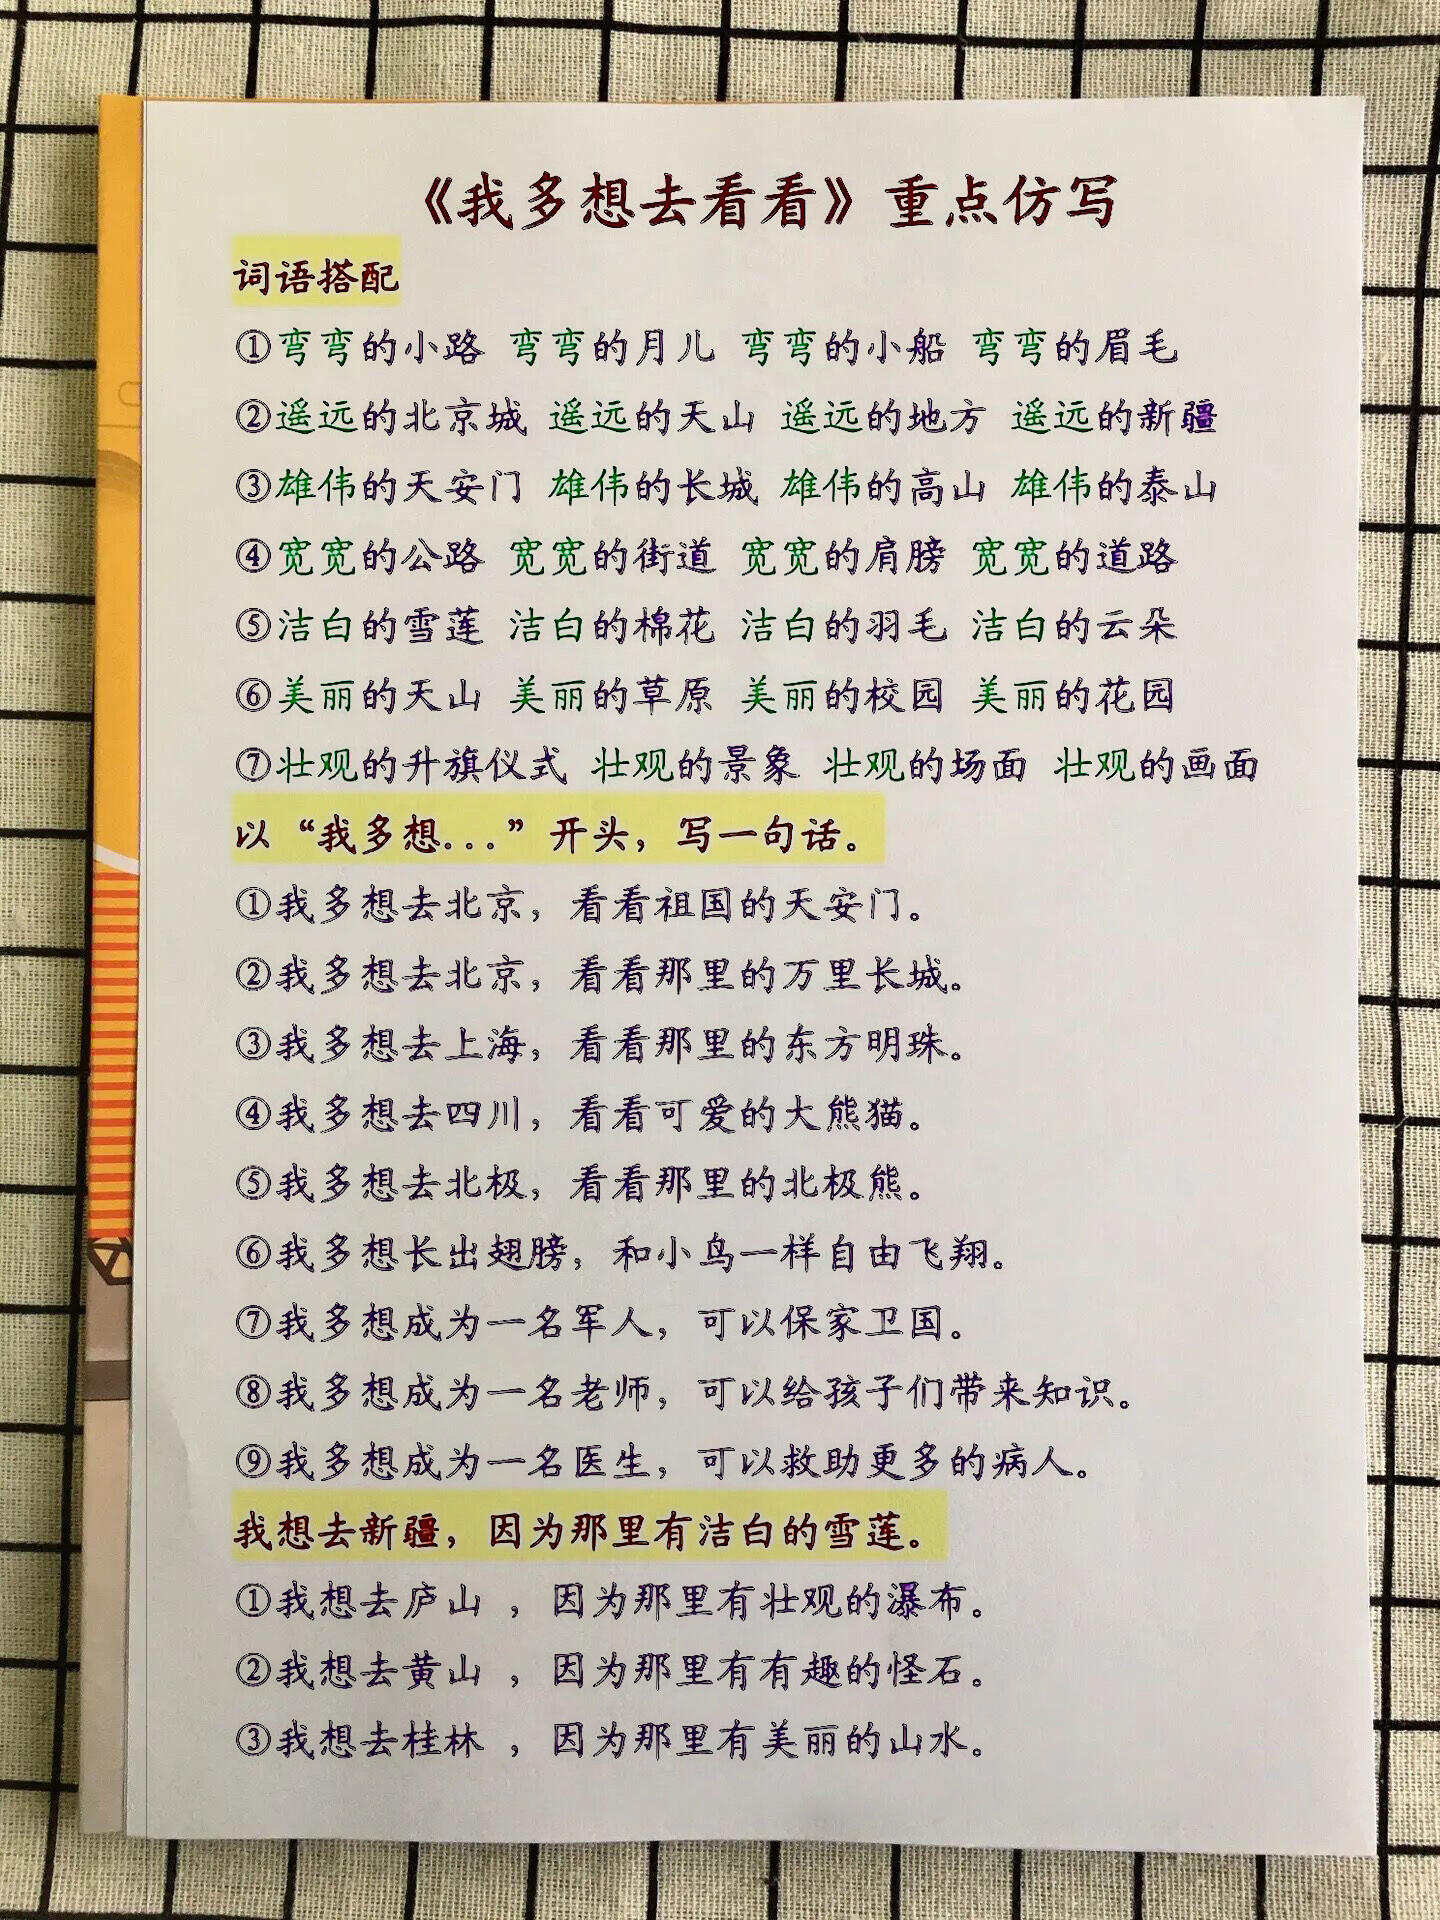 《我多想去看看》重点仿写
词语搭配
①弯弯的小路 弯弯的月儿 弯弯的小船 弯弯的眉毛
②遥远的北京城 遥远的天山 遥远的地方 遥远的新疆
③雄伟的天安门 雄伟的长城 雄伟的高山 雄伟的泰山
④宽宽的公路 宽宽的街道 宽宽的肩膀 宽宽的道路
⑤洁白的雪莲 洁白的棉花 洁白的羽毛 洁白的云朵
⑥美丽的天山 美丽的草原 美丽的校园 美丽的花园
⑦壮观的升旗仪式 壮观的景象 壮观的场面 壮观的画面
以“我多想...”开头，写一句话。
①我多想去北京，看看祖国的天安门。
②我多想去北京，看看那里的万里长城。
③我多想去上海，看看那里的东方明珠。
④我多想去四川，看看可爱的大熊猫。
⑤我多想去北极，看看那里的北极熊。
⑥我多想长出翅膀，和小鸟一样自由飞翔。
⑦我多想成为一名军人，可以保家卫国。
⑧我多想成为一名老师，可以给孩子们带来知识。
⑨我多想成为一名医生，可以救助更多的病人。
我想去新疆，因为那里有洁白的雪莲。
①我想去庐山 ，因为那里有壮观的瀑布。
②我想去黄山 ，因为那里有有趣的怪石。
③我想去桂林 ，因为那里有美丽的山水。